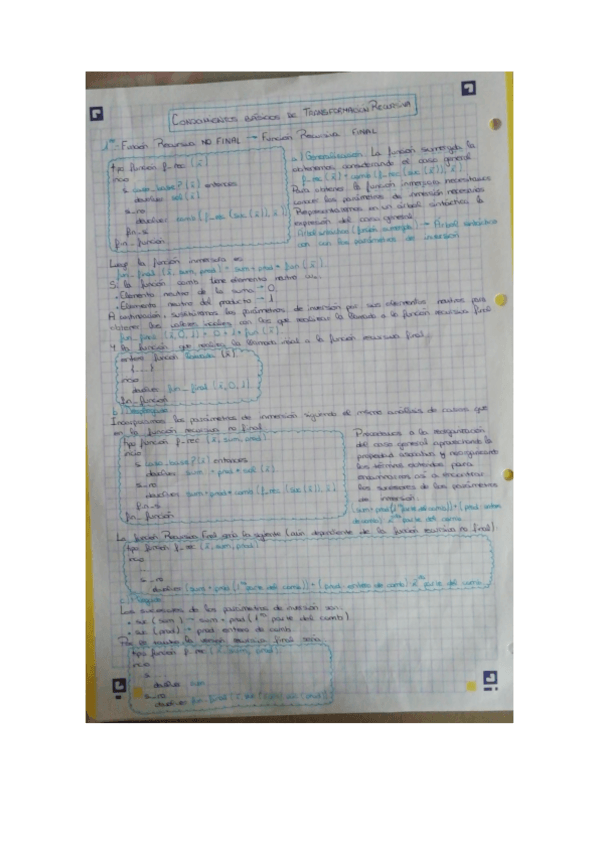 CONOCIMIENTOS BÁSICOS DE TRANSFORMACIÓN RECURSIVA
1º - Función Recursiva NO FINAL → Función Recursiva FINAL
tipo función f_rec (x̄)
inicio
si caso_base? (x̄) entonces
devolver sol (x̄)
si_no
devolver comb (f_rec (suc (x̄)), x̄)
fin_si
fin_función
a) Generalización. La función sumergida la
obtenemos considerando el caso general
f_rec (x̄) = comb (f_rec (suc (x̄)), x̄)
Para obtener la función inmersa necesitamos
conocer los parámetros de inmersión necesarios
Representaremos en un árbol sintáctico la
expresión del caso general.
Árbol sintáctico (función sumergida) → Árbol sintáctico
con los parámetros de inmersión
Luego la función inmersa es:
fun_final (x̄, sum, prod) = sum + prod * fun (x̄)
Si la función comb tiene elemento neutro
• Elemento neutro de la suma → 0
• Elemento neutro del producto → 1
A continuación, sustituimos los parámetros de inmersión por sus elementos neutros para
obtener los valores iniciales con los que realizar la llamada a la función recursiva final
fun_final (x̄, 0, 1) = 0 + 1 * fun (x̄)
Y la función que realiza la llamada inicial a la función recursiva final
entero función llamada (x̄)
{....}
inicio
devolver fun_final (x̄, 0, 1)
fin_función
b) Desplegado
Incorporamos los parámetros de inmersión siguiendo el mismo análisis de casos que
en la función recursiva no final
tipo función f_rec (x̄, sum, prod)
inicio
si caso_base? (x̄) entonces
devolver sum + prod * sol (x̄)
si_no
devolver sum + prod * comb (f_rec (suc (x̄)), x̄)
fin_si
fin_función
Procedemos a la reorganización
del caso general aplicando la
propiedad asociativa y reorganizando
los términos obtenidos para
encontrar los sucesores de los parámetros
de inmersión.
La función Recursiva Final sería la siguiente (aún dependiente de la función recursiva no final):
tipo función f_rec (x̄, sum, prod)
inicio
...
si_no
c) Plegado
Los sucesores de los parámetros de inmersión son:
• suc (sum) → sum + prod (1ª parte del comb)
• suc (prod) → prod · entero de comb
Por lo tanto la versión recursiva final sería
tipo función f_rec (x̄, sum, prod)
inicio
si
devolver sum
si_no